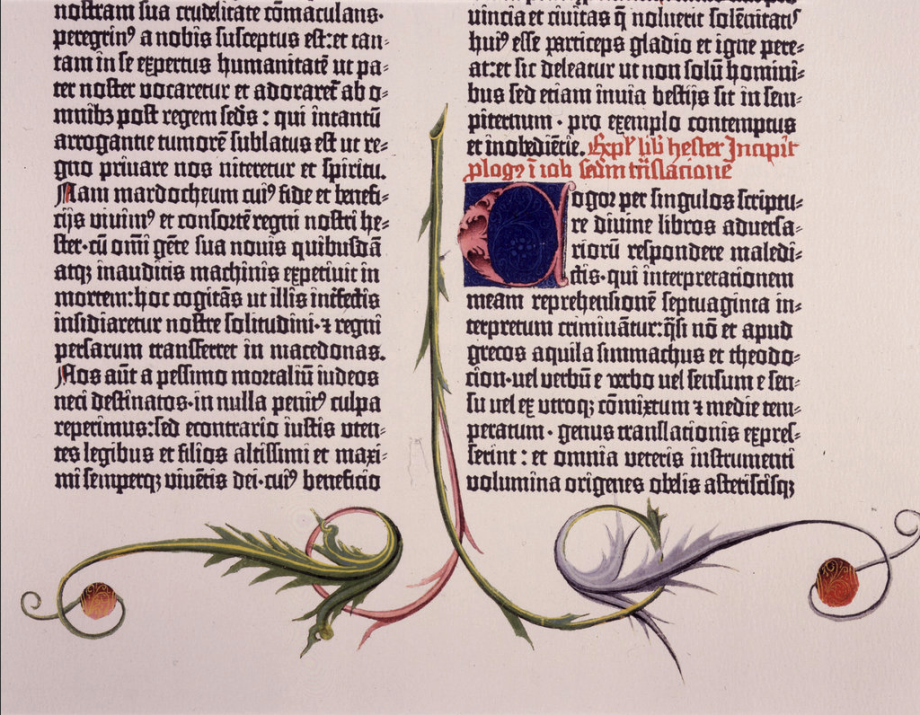 nostram sua crudelitate cōmaculans·
peregrinꝰ a nobis susceptus est:et tan-
tam in se expertus humanitatē ut pa-
ter noster vocaretur et adoraret̄ ab o-
mnibꝫ post regem scd̄s : qui intantū
arrogantie tumorē sublatus est ut re-
gno privare nos niteretur et spiritu.
Nam mardocheum cuiꝰ fide et benefi-
cijs vivimꝰ et consortē regni nostri he-
ster·cū om̄i gēte sua novis quibusdā
atqꝫ inauditis machinis expetiuit in
mortem:hoc cogitās ut illis intērfectis
insidiaretur nostre solitudini·⁊ regnū
persarum transferret in macedonas.
Nos aūt a pessimo mortaliū iudeos
neci destinatos·in nulla penitꝰ culpa
reperimus:sed econtrario iustis uten-
tes legibus et filios altissimi et maxi-
mi semperqꝫ viuētis dei·cuiꝰ beneficio
uincia et ciuitas q̄ noluerit solēnitatis
huiꝰ esse particeps gladio et igne pere-
at:et sic deleatur ut non solū homini-
bus sed etiam inuia bestijs sit in sem-
piternum · pro exemplo contemptus
et inobediētie. Expl' lib' hester Incipit
plogꝰ ī iob scd̄m trāslacionē
Cogor per singulos scriptu-
re diuine libros aduersa-
riorū respondere maledi-
ctis·qui interpretationem
meam reprehensionē septuaginta in-
terpretum criminātur:q̄si nō et apud
grecos aquila simmachus et theodo-
cion·uel verbū e verbo uel sensum e sen-
su uel ex utroqꝫ cōmixtum ⁊ medie tem-
peratum · genus translationis expres-
serint : et omnia veteris instrumenti
volumina origenes obelis asteriscisqꝫ